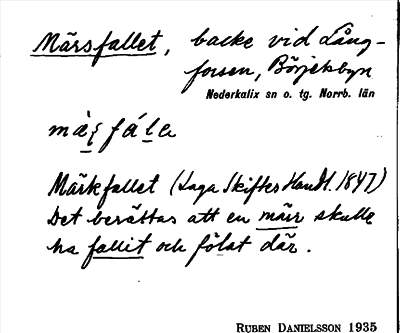 Märsfallet, backe vid Lång-
forsen, Börjelsbyn
Nederkalix sn o. tg. Norrb. län
mä̀ʂfála
Märkfallet (Laga Skiftes Handl. 1847)
Det berättas att en märr skulle
ha fallit och fölat där.
RUBEN DANIELSSON 1935